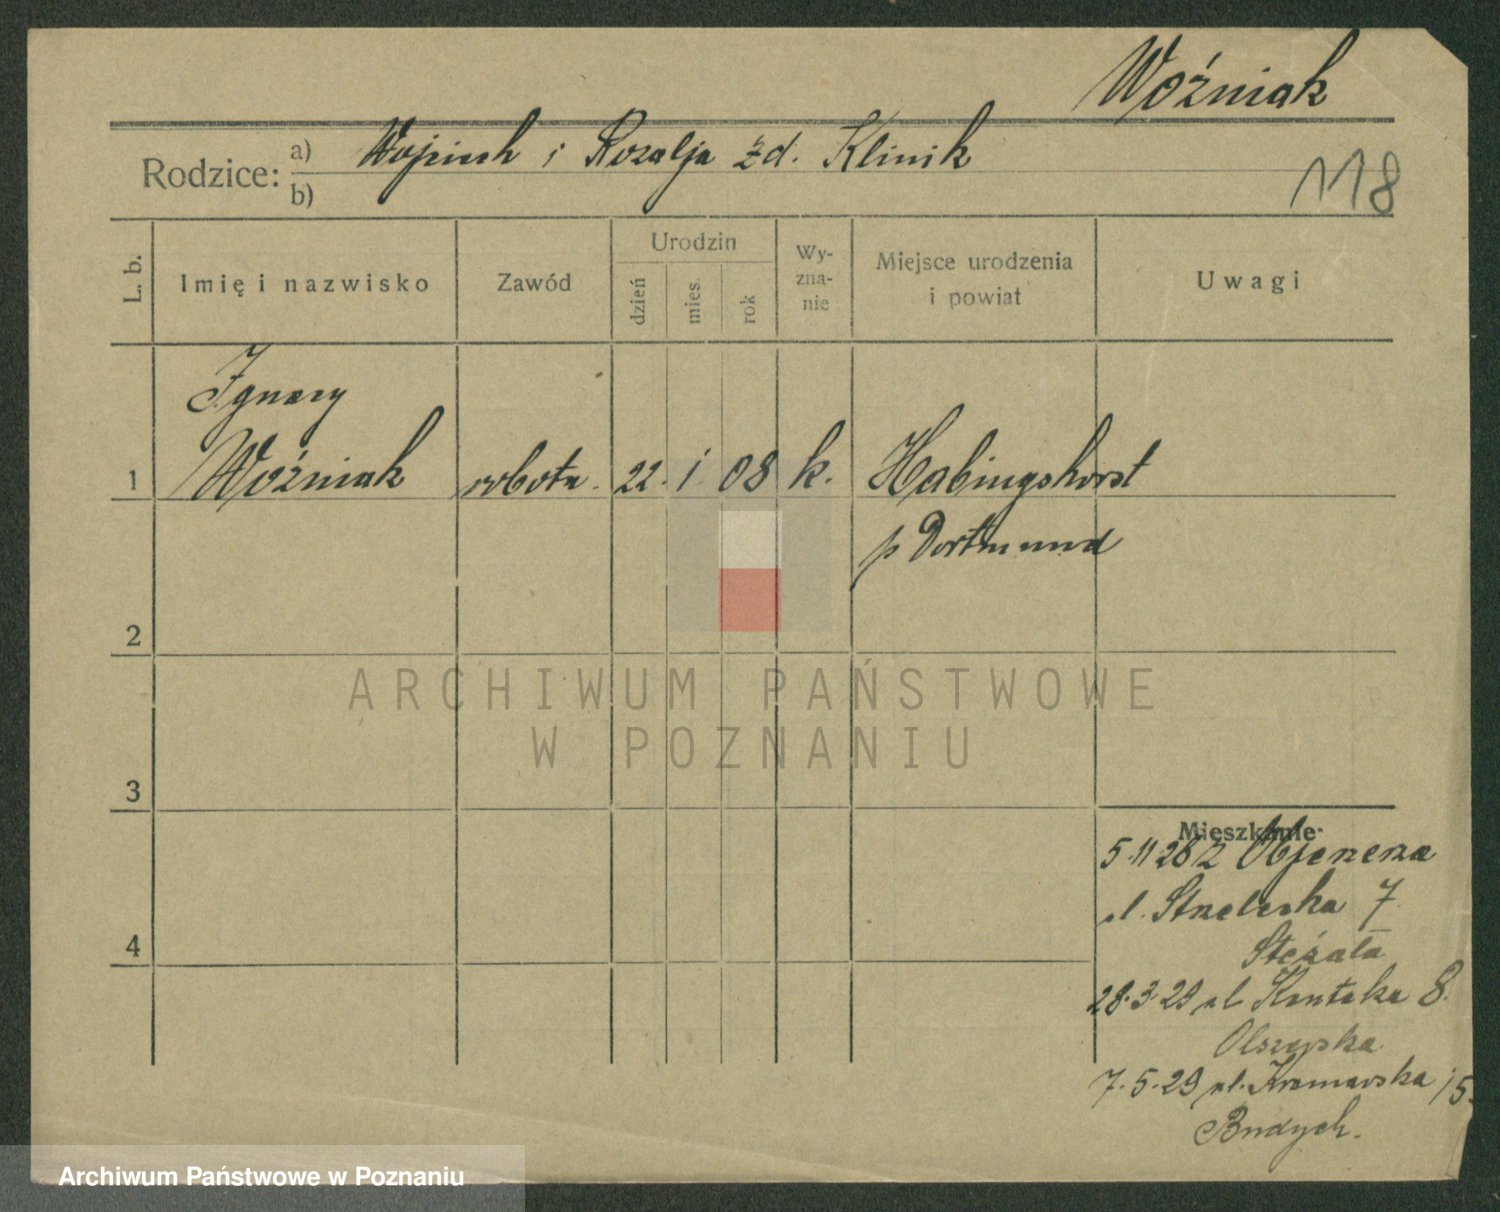 Woźniak
Rodzice: a) Wojciech i Rozalja zd. Klinik
b)
118
L. b. Imię i nazwisko Zawód Urodzin dzień mies. rok Wy-zna-nie Miejsce urodzenia i powiat Uwagi
Ignacy
1 Woźniak robotn. 22. i 08 k. Habingshorst
p Dortmund
2
ARCHIWUM PAŃSTWOWE
W POZNANIU
3
Mieszkanie
5.11 28 z Objezierza
ul. Strzelecka 7
28.3.29 ul 8.
7.5.29 ul. Kramarska 15.
4
Archiwum Państwowe w Poznaniu